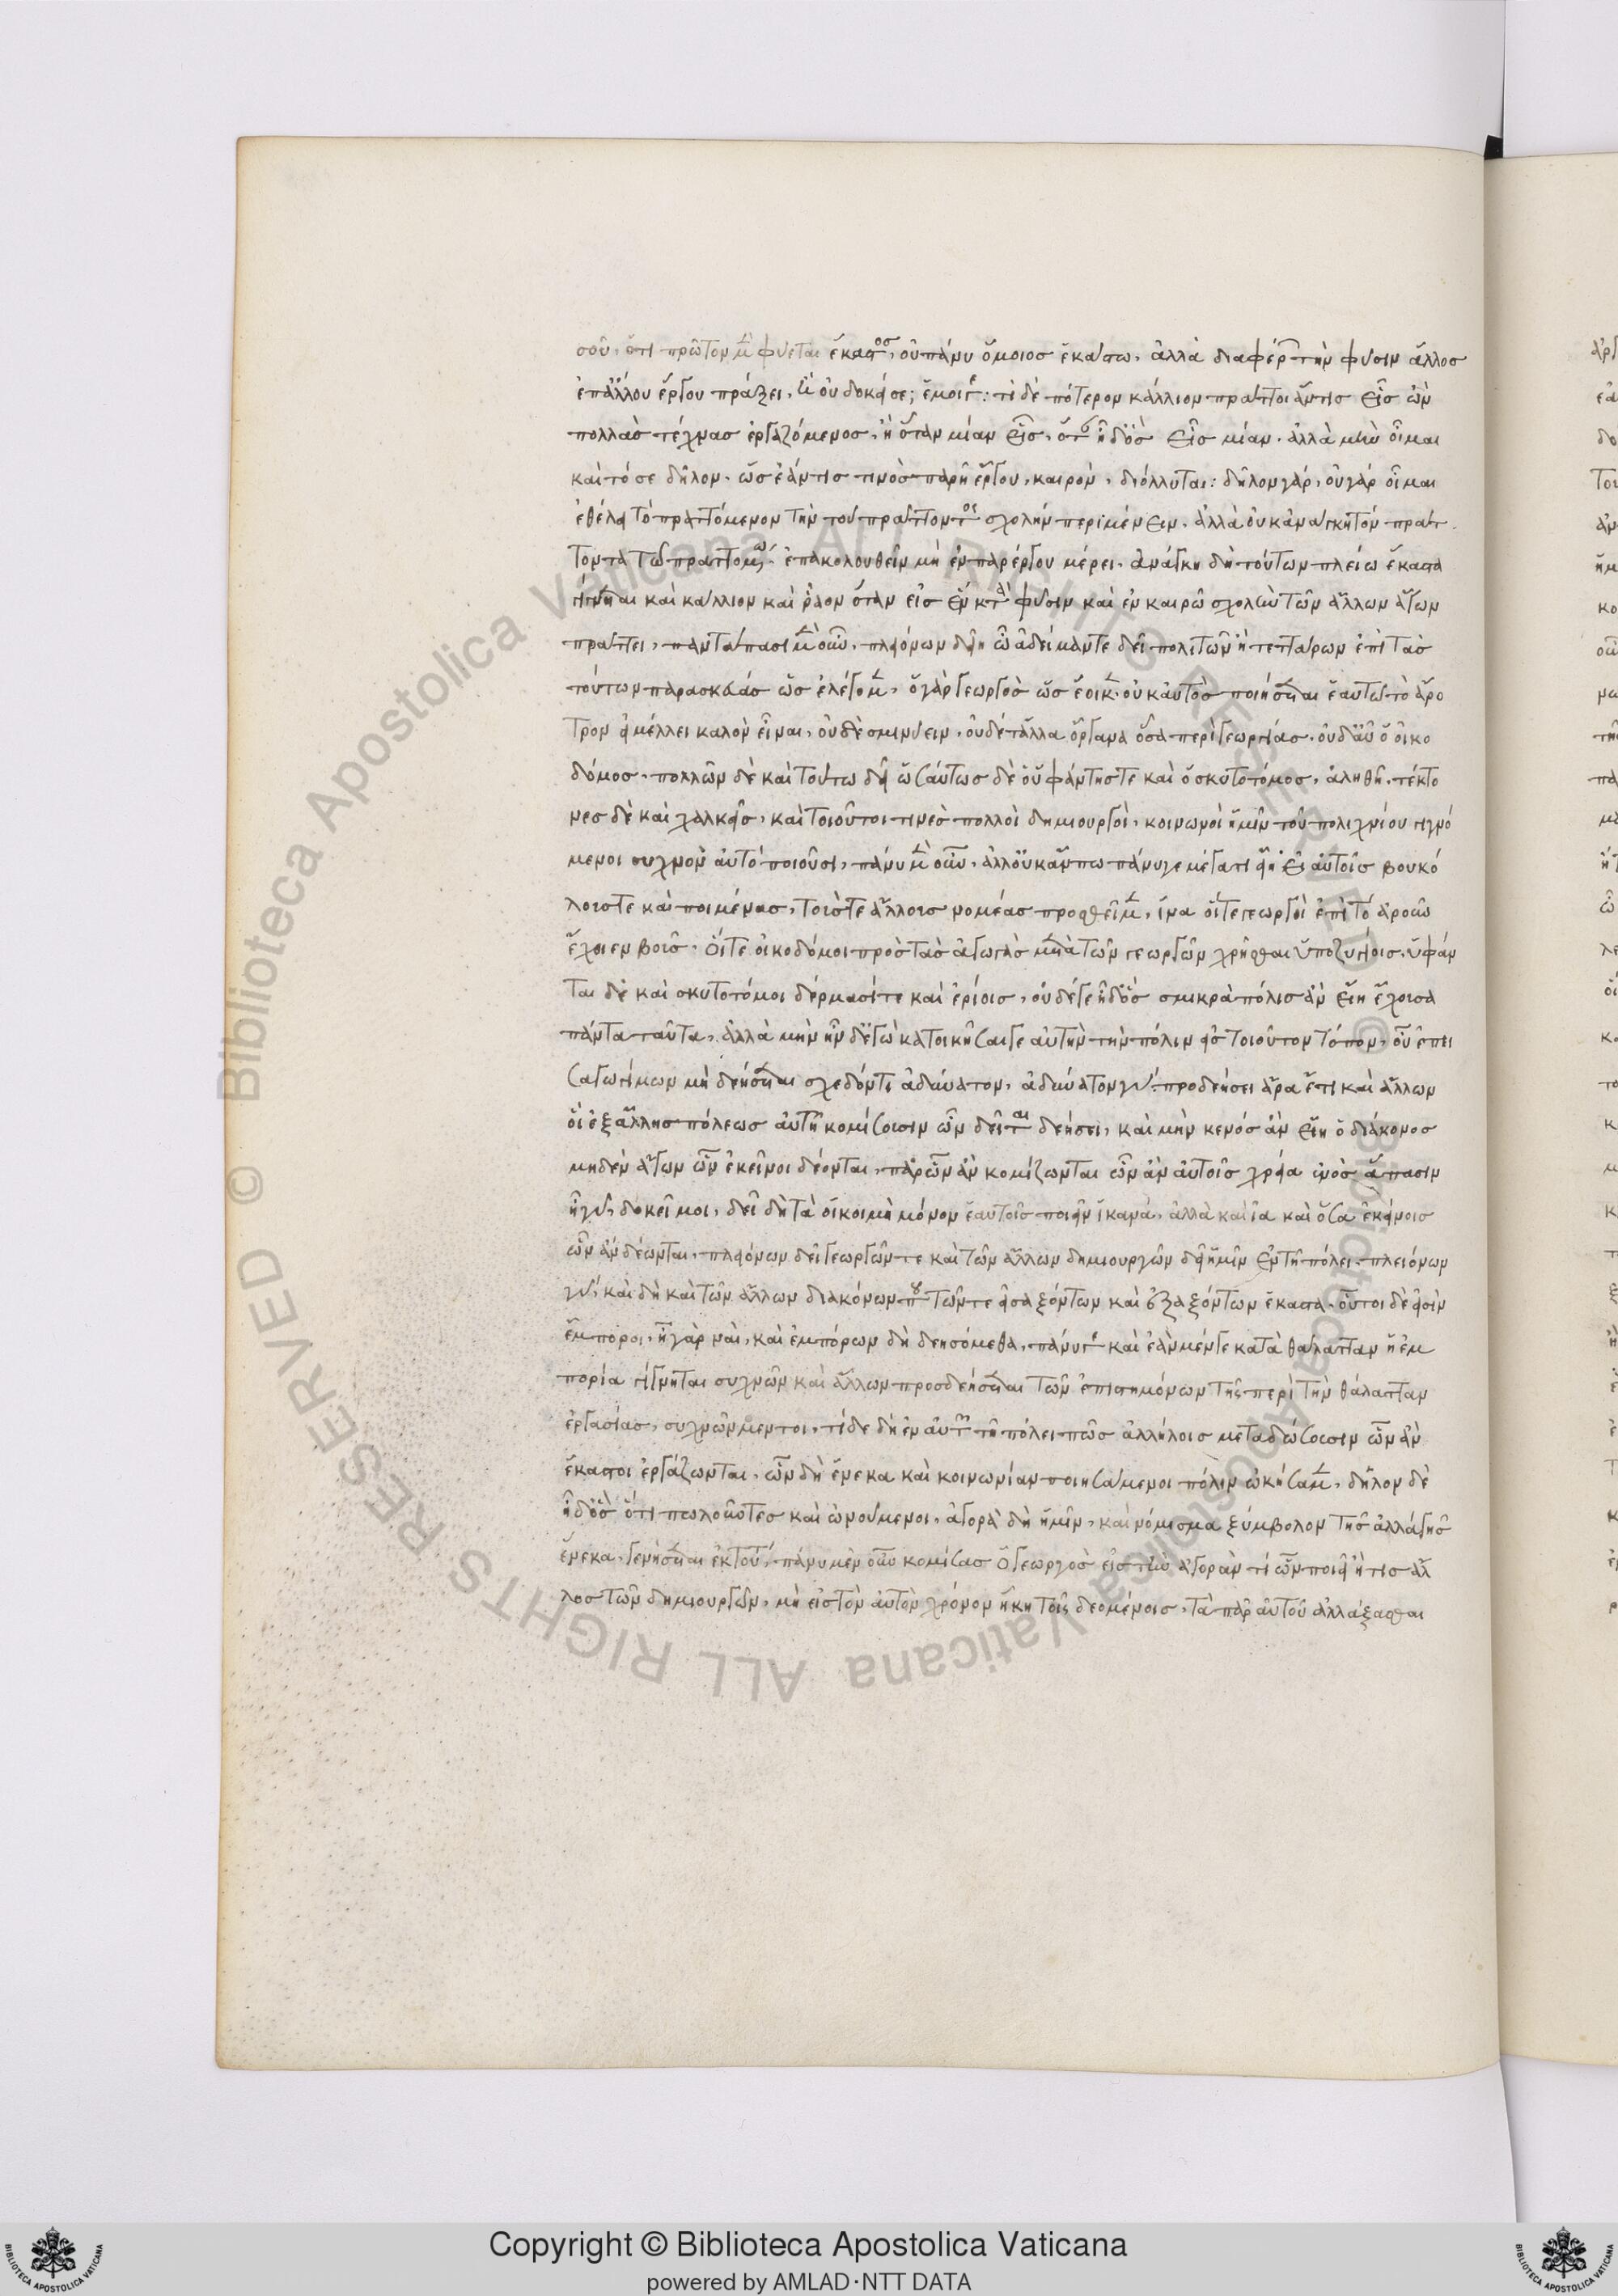 σοῦ, ὅτι πρῶτον μ̀ φύεται ἕκαστος, οὐ πάνυ ὅμοιος ἑκάστω, ἀλλὰ διαφέρ τὴν φύσιν ἄλλος
ἐπ ἄλλου ἔργου πράξει, ἢ οὐ δοκεῖ σε; ἔμοιγε: τί δὲ πότερον κάλλιον πράττοι ἄν τις εἷς ὢν
πολλὰς τέχνας ἐργαζόμενος, ἢ ὅταν μίαν εἷς, ὅτ ἦ δ ὃς εἷς μίαν. ἀλλὰ μὴν οἶμαι
καὶ τό σε δῆλον. ὡς ἐάν τις τινὸς παρῆ ἔργου, καιρὸν, διόλλυται: δῆλον γάρ, οὐ γάρ οἶμαι
ἐθέλει τὸ πραττόμενον τὴν τοῦ πράττοντος σχολὴν περιμένειν. ἀλλὰ οὐκ ἀνάγκη τὸν πράτ
τοντα τῶ πραττομ. ἐπακολουθεῖν μὴ ἐν παρέργου μέρει. ἀνάγκη δὴ τούτων πλείω ἕκαστα
γίγνεται καὶ κάλλιον καὶ ῥᾶον ὅταν εἷς ἓν κτὰ φύσιν καὶ ἐν καιρῶ σχολὴν τῶν ἄλλων ἄγων
πράττει, παντάπασι μ̀ οὖν, πλειόνων δεῖ ὦ ἀδείμαντε δεῖ πολιτῶν ἢ τεττάρων ἐπὶ τὰς
τούτων παρασκευὰς ὡς ἐλέγομ, ὁ γὰρ γεωργὸς ὡς ἔοικ. οὐκ αὐτὸς ποιήσεται ἑαυτῶ τὸ ἄρο
τρον εἰ μέλλει καλὸν εἶναι, οὐδὲ σμινύειν, οὐδέ τἄλλα ὄργανα ὅσα περὶ γεωργίας. οὐδ αὖ ὁ οἰκο
δόμος. πολλῶν δὲ καὶ τούτω δεῖ ὡσαύτως δὲ ὁ ὑφάντης τε καὶ ὁ σκυτοτόμος, ἀληθῆ. τέκτο
νες δὲ καὶ χαλκεῖς, καὶ τοιοῦτοι τινὲς πολλοὶ δημιουργοὶ, κοινωνοὶ ἡμῖν τοῦ πολιχνίου γιγνό
μενοι συχνὸν αὐτὸ ποιοῦσι, πάνυ μ̀ οὖν, ἀλλ οὐκ ἄν πω πάνυ γε μέγα τι εἴη εἰ αὐτοῖς βουκό
λους τε καὶ ποιμένας, τούς τε ἄλλους νομέας προσθεῖμ, ἵνα οἵ τε γεωργοὶ ἐπὶ τὸ ἀροῦν
ἔχοιεν βοῦς. οἵ τε οἰκοδόμοι πρὸς τὰς ἀγωγὰς μετὰ τῶν γεωργῶν χρῆσθαι ὑποζυγίοις, ὑφάν
ται δὲ καὶ σκυτοτόμοι δέρμασί τε καὶ ἐρίοις, οὐδέ γε ἦ δ ὃς σμικρὰ πόλις ἂν εἴη ἔχουσα
πάντα ταῦτα, ἀλλὰ μὴν ἦν δ ἐγὼ κατοικῆσαι γε αὐτὴν τὴν πόλιν εἰς τοιοῦτον τόπον, οὗ ἐπει
σαγωγίμων μὴ δεήσεται σχεδόν τι ἀδύνατον, ἀδύνατον γάρ. προσδεήσει ἄρα ἔτι καὶ ἄλλων
οἳ ἐξ ἄλλης πόλεως αὐτῆ κομίσουσιν ὧν δεῖται δεήσει, καὶ μὴν κενός ἂν εἴη ὁ διάκονος
μηδὲν ἄγων ὧν ἐκεῖνοι δέονται, παρ ὧν ἂν κομίζωνται ὧν ἂν αὐτοῖς χρεία ἄπασιν
δοκεῖ μοι, δεῖ δὴ τὰ οἴκοι μὴ μόνον ἑαυτοῖς ποιεῖν ἱκανά, ἀλλὰ καὶ οἷα καὶ ὅσα ἐκείνοις
ὧν ἂν δέωνται, πλειόνων δεῖ γεωργῶν τε καὶ τῶν ἄλλων δημιουργῶν δεῖ ἡμῖν ἐν τῆ πόλει. πλειόνων
γάρ, καὶ δὴ καὶ τῶν ἄλλων διακόνων π τῶν τε εἰσαξόντων καὶ ἐξαξόντων ἕκαστα. οὗτοι δὲ εἰσὶν
ἔμποροι, ἦ γὰρ ναὶ, καὶ ἐμπόρων δὴ δεησόμεθα, πάνυ γε καὶ ἐὰν μέν γε κατὰ θάλατταν ἡ ἐμ
πορία γίγνηται συχνῶν καὶ ἄλλων προσδεήσεται τῶν ἐπιστημόνων τῆς περὶ τὴν θάλατταν
ἐργασίας, συχνῶν μεντοι, τί δε δὴ ἐν αὐτῆ τῆ πόλει πῶς ἀλλήλοις μεταδώσουσιν ὧν ἂν
ἕκαστοι ἐργάζωνται, ὧν δὴ ἕνεκα καὶ κοινωνίαν ποιησάμενοι πόλιν ὠκήσαμ, δῆλον δὲ
ἦ δ ὃς ὅτι πωλοῦντες καὶ ὠνούμενοι, ἀγορὰ δὴ ἡμῖν, καὶ νόμισμα ξύμβολον τῆς ἀλλαγῆς
ἕνεκα, γενήσεται ἐκ τού, πάνυ μὲν οὖν κομίσας ὁ γεωργὸς εἰς τὴν ἀγοράν τί ὧν ποιεῖ ἤ τις ἄλ
λος τῶν δημιουργῶν, μὴ εἰς τὸν αὐτὸν χρόνον ἥκη τοῖς δεομένοις, τὰ παρ αὐτοῦ ἀλλάξασθαι
Copyright © Biblioteca Apostolica Vaticana
powered by AMLAD·NTT DATA